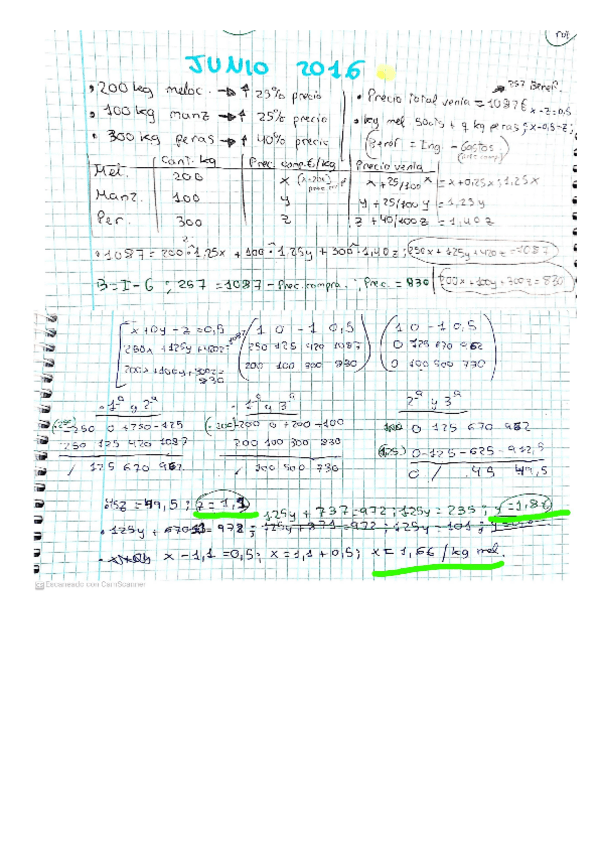 JUNIO 2016
• 200 kg meloc. → ↑ 25% precio
• 100 kg manz → ↑ 25% precio
• 300 kg peras → ↑ 40% precio
257 Benef.
• Precio total venta = 1087€
x-z=0,5
Benef = Ing. - Costos
Cant. kg Prec. comp. €/kg Precio venta
Mel. 200 x x+25/100x = x+0,25x; 1,25x
Manz. 100 y y+25/100y = 1,25y
Per. 300 z z+40/100z = 1,40z
• 1087 = 200·1,25x + 100·1,25y + 300·1,40z; 250x+125y+420z=1087
B=I-G; 257=1087-Prec.compra. Prec.=830 200x+100y+300z=830
x+0y-z=0,5
250x+125y+420z=1087
200x+100y+300z=830
1 0 -1 0,5
250 125 420 1087
200 100 300 830
1 0 -1 0,5
0 125 670 962
0 100 500 730
-1ª y 2ª
-250 0 +250 -125
250 125 420 1087
/ 125 670 962
-1ª y 3ª
(-200) -200 0 +200 -100
200 100 300 830
/ 100 500 730
2ª y 3ª
0 125 670 962
0 -125 -625 -912,5
0 / 45 49,5
45z=49,5; z=1,1
125y+737=972; 125y=235; y=1,88
x-1,1=0,5; x=1,1+0,5; x=1,6€/kg mel.
Escaneado con CamScanner